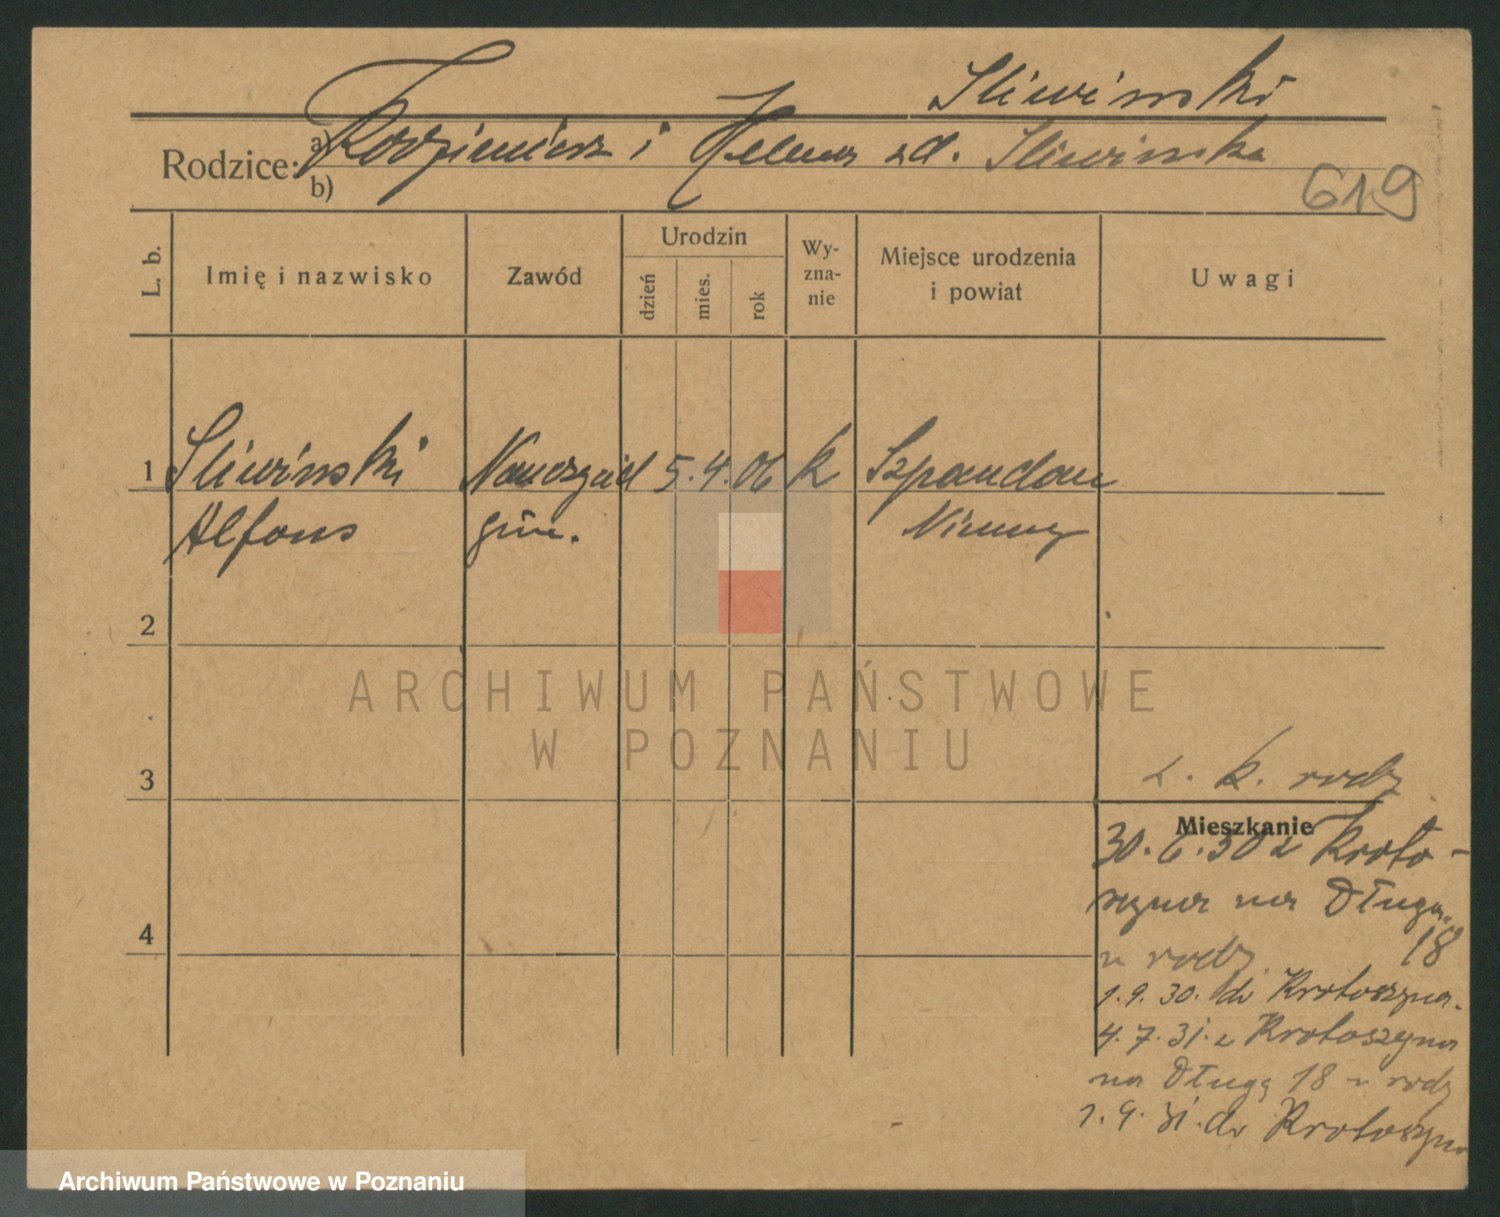 Sliwinski
Rodzice: a) Kazimierz i Helena zd. Sliwinska
b)
619
L. b.
Imię i nazwisko
Zawód
Urodzin
dzień
mies.
rok
Wy-
zna-
nie
Miejsce urodzenia
i powiat
Uwagi
1 Sliwinski Nauczyciel 5. 4. 06 k Szpandau
Alfons gim. Niemcy
2
ARCHIWUM PAŃSTWOWE
W POZNANIU
3
z. k. rodz
Mieszkanie
30. 6. 30 z Kroto-
szyna na Długą
18
u rodz.
1. 9. 30. do Krotoszyna.
4. 7. 31. z Krotoszyna
na Długą 18 u rodz
1. 9. 31. do Krotoszyna
4
Archiwum Państwowe w Poznaniu